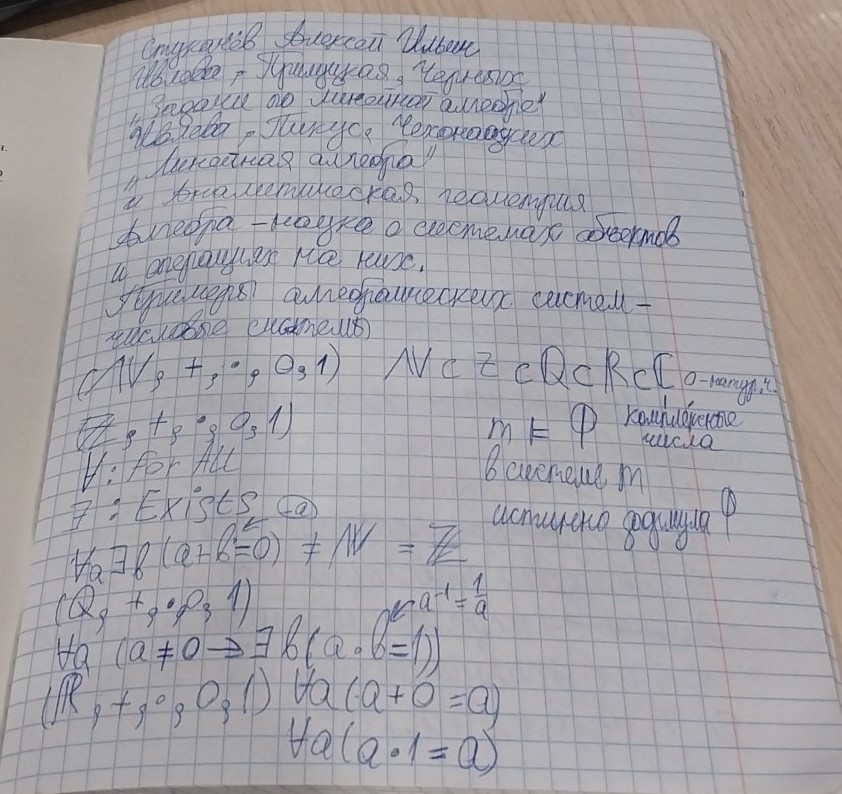 Стуканёв Алексей Ильич
Ивлева, Прилуцкая, Черных
"Задачи по линейной алгебре"
Ивлева, Пинус, Чехонадских
"Линейная алгебра"
и Аналитическая геометрия
Алгебра - наука о системах объектов
и операциях на них.
Примеры алгебраических систем -
числовые системы
(ℕ, +, ·, 0, 1) ℕ ⊂ ℤ ⊂ ℚ ⊂ ℝ ⊂ ℂ 0-натур.ч.
комплексные
числа
(ℤ, +, ·, 0, 1) m ⊨ Φ
∀: for All в системе m
∃: Exists (-a) истинно формула Φ
∀a∃b (a+b=0) ≠ ℕ = ℤ
(ℚ, +, ·, 0, 1) a⁻¹ = 1/a
∀a (a ≠ 0 → ∃b (a·b=1))
(ℝ, +, ·, 0, 1) ∀a (a+0=a)
∀a (a·1=a)